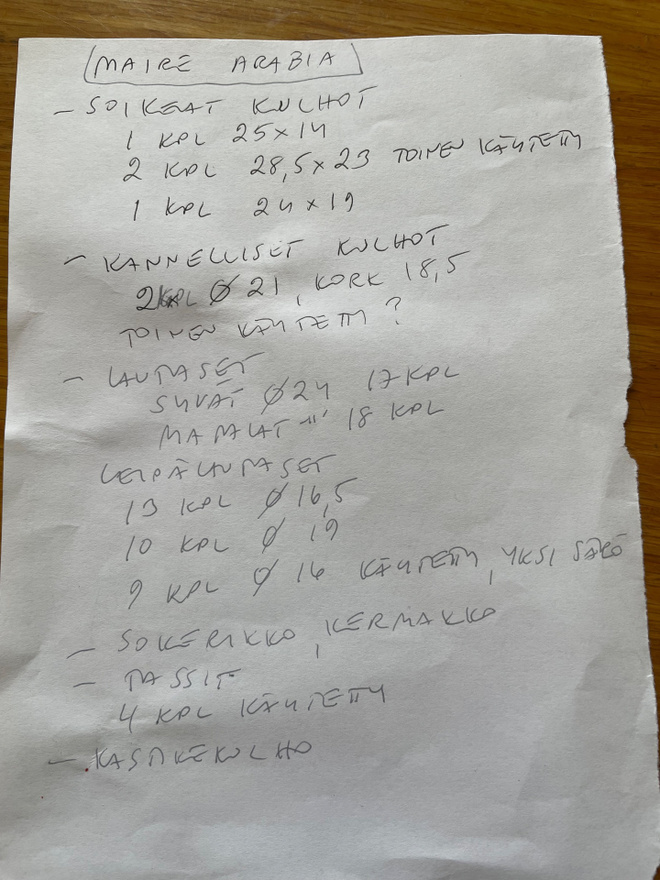 MAIRE ARABIA
- SOIKEAT KULHOT
1 KPL 25x14
2 KPL 28,5x23 TOINEN KÄYTETTY
1 KPL 24x19
- KANNELLISET KULHOT
2 KPL Ø 21, KORK 18,5
TOINEN KÄYTETTY ?
- LAUTASET
SYVÄT Ø24 17 KPL
MATALAT -"- 18 KPL
LEIPÄLAUTASET
13 KPL Ø 16,5
10 KPL Ø 19
9 KPL Ø 16 KÄYTETTY, YKSI SÄRÖ
- SOKERIKKO, KERMAKKO
- TASSIT
4 KPL KÄYTETTY
- KASTIKEKULHO